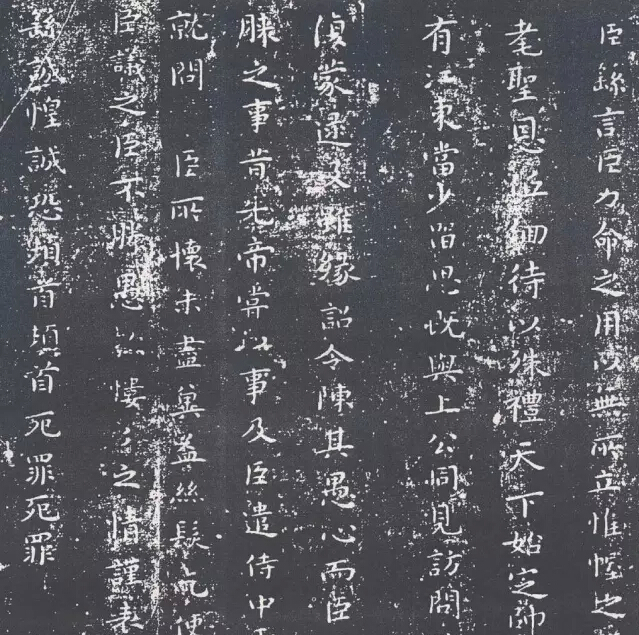 臣繇言臣力命之用以無所立惟幄之
耄聖恩低徊待以殊禮天下始定帥
有江東當少留思既與上公同見訪問
復蒙逮及雖緣詔令陳其愚心而臣
膝之事昔先帝嘗以事及臣遣侍中
就問 臣所懷未盡冀益絲髮乞使
臣議之臣不勝愚款慺々之情謹表
繇誠惶誠恐頓首頓首死罪死罪